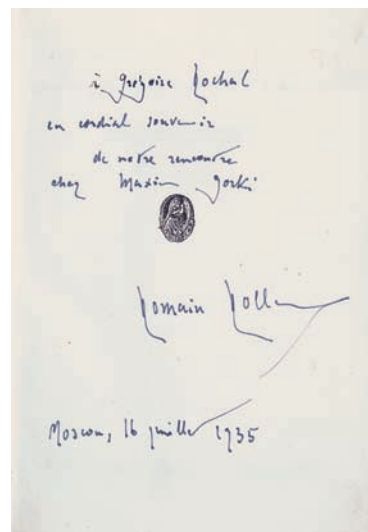 à Grégoire Rochal
en cordial souvenir
de notre rencontre
chez Maxim Gorki
Romain Rolland
Moscou, 16 juillet 1935